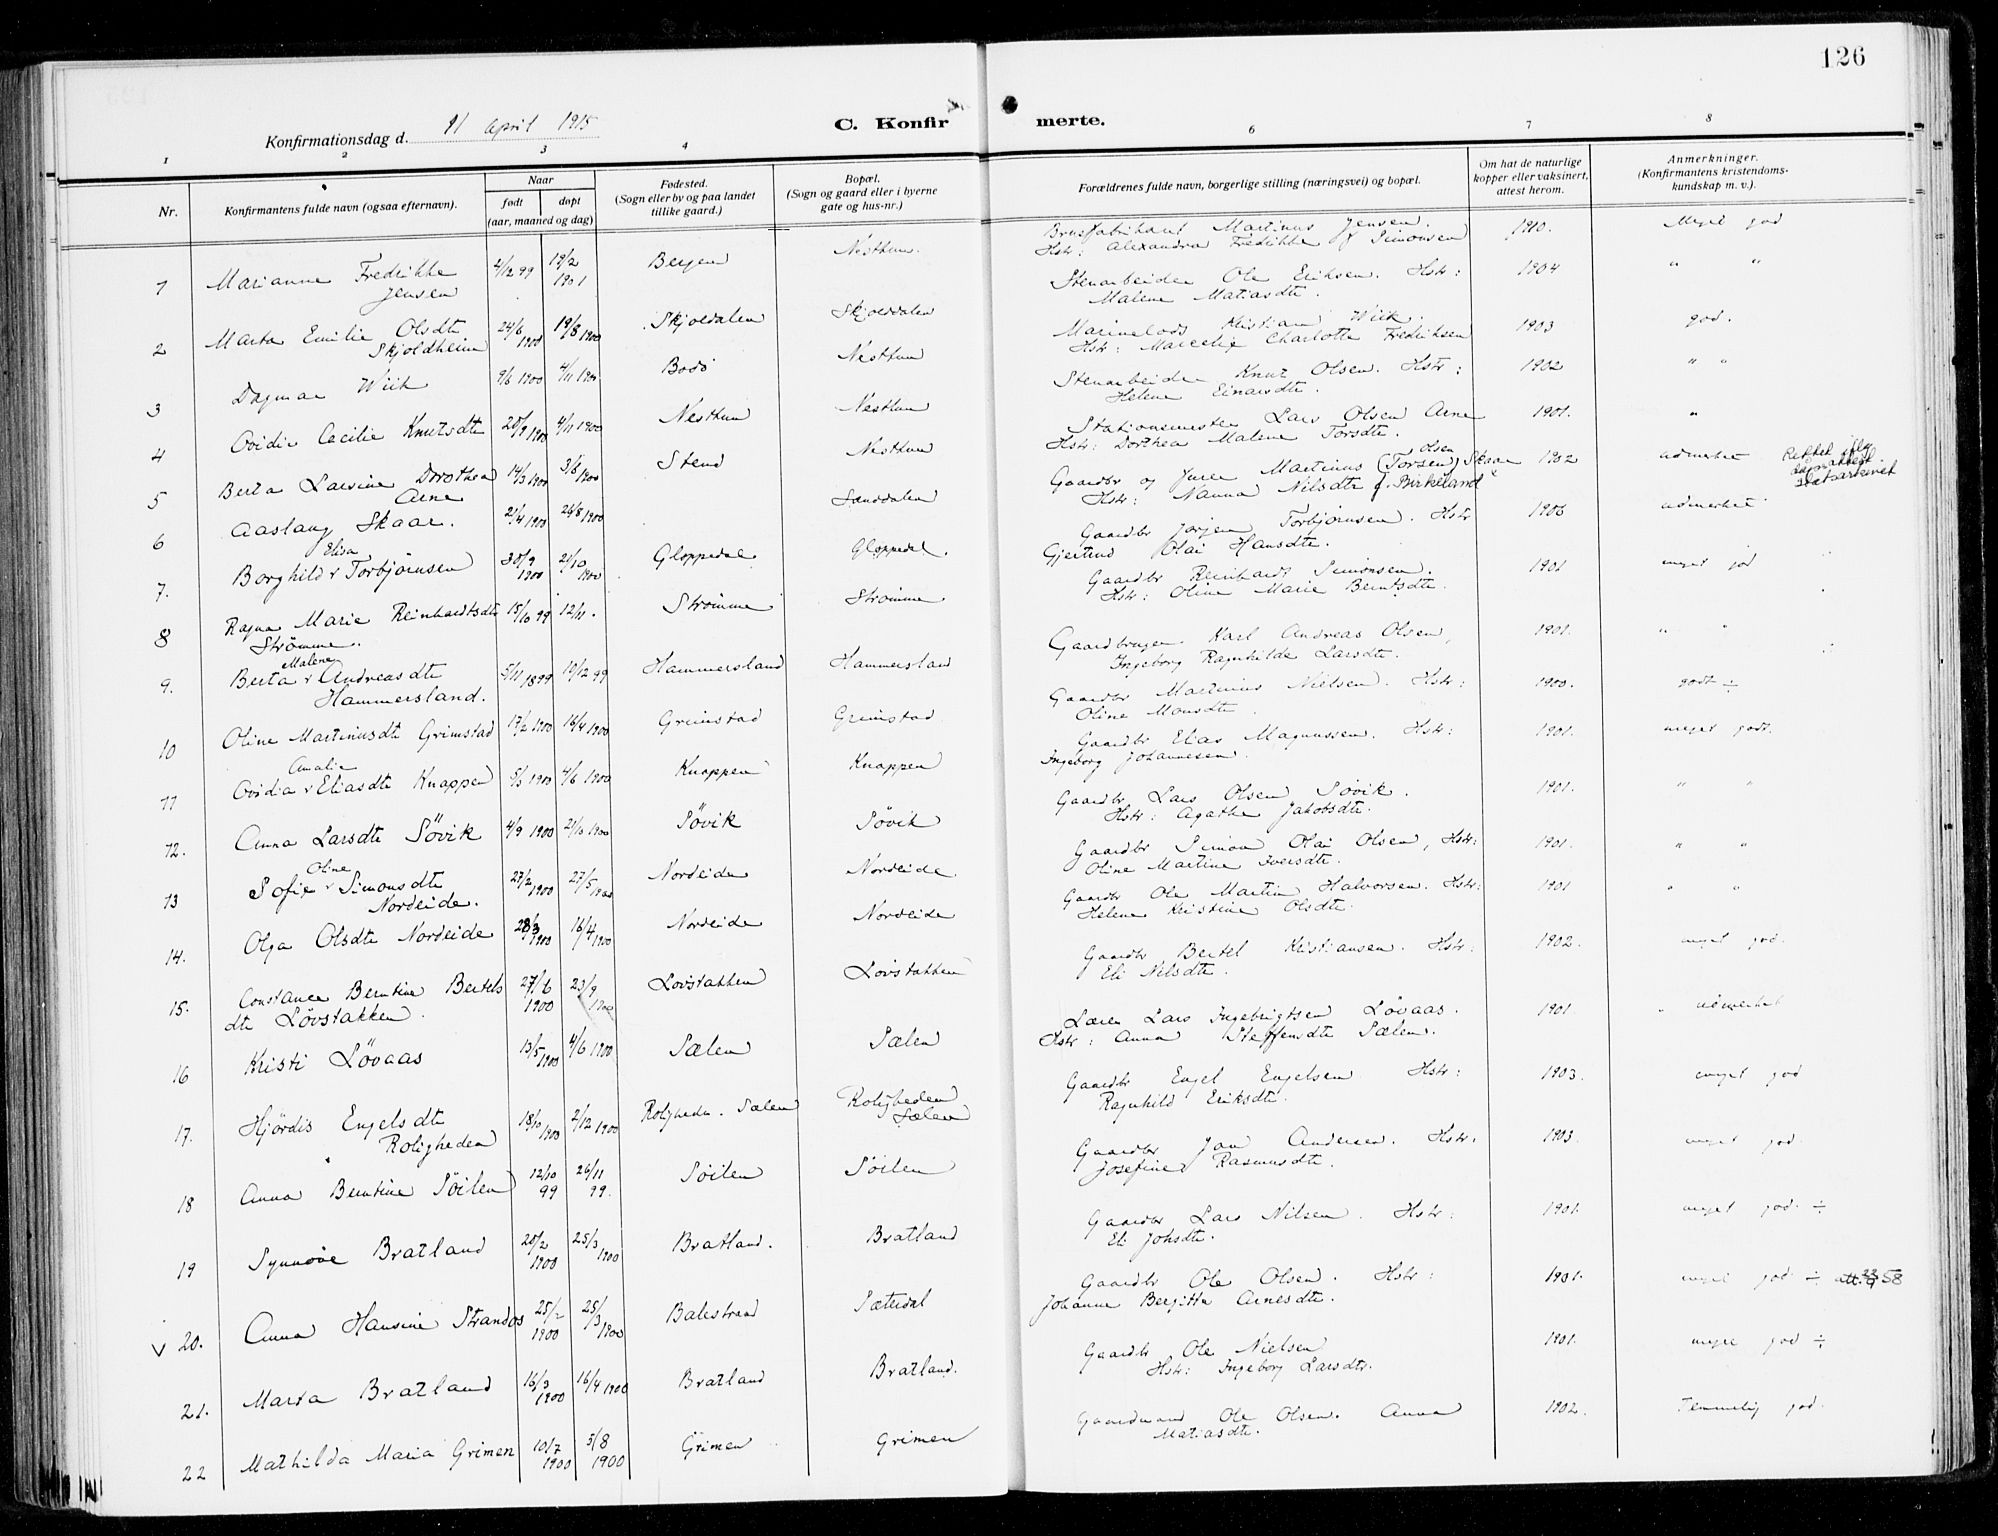 126
Konfirmationsdag d. 11 April 1915
C. Konfirmerte.
1 2 3 4 6 7 8
Nr.
Konfirmantens fulde navn (ogsaa efternavn).
Naar
født
døpt
(aar, maaned og dag)
Fødested.
(Sogn eller by og paa landet
tillike gaard.)
Bopæl.
(Sogn og gaard eller i byerne
gate og hus-nr.)
Forældrenes fulde navn, borgerlige stilling (næringsvei) og bopæl.
Om hat de naturlige
kopper eller vaksinert,
attest herom.
Anmerkninger.
(Konfirmantens kristendoms-
kundskap m. v.).
1 Marianne Fredrikke 2/12 99 19/2 Bergen Nesttun. Brusfabrikant Martinus Jensen. 1910. Meget god
Jensen 1901 Hstr: Alexandra Fredrikke f Simonsen
2 Marta Emilie Olsdtr 24/6 1900 19/8 1900 Skjoldalen Skjolddalen Stenarbeider Ole Eriksen. Hstr: 1904 " "
Skjoldheim Malene Matiasdtr.
3 Dagmar Wiik 9/6 1900 4/11 1900 Bodö Nesttun Kristian Wiik. 1903 god.
Hstr: Charlotte Fredriksen
4 Ovidie Cecilie Knutsdtr 4/11 1900 Nesttun Nesttun Stenarbeider Knut Olsen. Hstr: 1902 " "
Helene Einarsdtr.
5 Berta Larsine Dorothea 14/3 1900 3/6 1900 Stend Nesttun Stationsmester Lars Olsen Arne 1901. "
Arne Hstr: Dorthea Malene Torsdtr.
6 Aaslaug Skaar. 21/4 1900 26/8 1900 Sanddalen Gaardbr og Martinus (Torsen) Skaar 1902 udmerket Rettet iflg
olsen
Hstr: Nanna Nilsdtr f. Birkeland Statsarkivet
7. Borghild Torbjørnsen 30/9 1900 21/10 1900 Gloppedal Gloppedal. Gaardbr Jørgen Torbjørnsen. Hstr 1906 udmerket.
Elisa
Gjertrud Olai Hansdtr.
8 Ragna Marie Reinhardtsdtr 15/10 99 12/11. Strömme Strömme Gaardbr Reinhardt Simonsen. 1901 meget god
Strömme. Hstr: Oline Marie Berntsdtr.
9. Berta Andreasdtr 5/11 1899 19/12 99 Hammersland Hammersland Gaardbruger Karl Andreas Olsen, 1901. " "
Malene
Hammersland. Ingeborg Ragnhilde Larsdtr.
10 Oline Martinusdtr Grimstad 17/2 1900 16/4 1900 Grimstad Grimstad Gaardbr Martinus Nielsen. Hstr: 1900. godt ÷
Oline Monsdtr.
11 Ovidia Eliasdtr Knappen 4/6 1900 Knappen Knappen Gaardbr Elias Magnussen. Hstr: 1901. meget godt.
Amalie
Ingeborg Johannesen.
12. Anna Larsdtr Sövik 4/9 1900 21/10 1900 Sövik Sövik Gaardbr Lars Olsen Sövik. 1901. " "
Hstr: Agathe Jakobsdtr.
13 Sofie Simonsdtr 27/2 1900 27/5 1900 Nordeide Nordeide Gaardbr Simon Olai Olsen, Hstr: 1901. " "
Oline
Nordeide. Oline Martine Iversdtr.
14. Olga Olsdtr Nordeide 28/3 1900 16/4 1900 Nordeide Nordeide Gaardbr Ole Martin Halvorsen. Hstr: 1901 " "
Helene Kristine Olsdtr.
15. Constance Berntine Bertels 27/6 1900 23/9 1900 Lövstakken Lövstakken Gaardbr Bertel Kristiansen. Hstr: 1902. meget god.
dtr Lövstakken. Eli Nilsdtr.
16 Kristi Lövaas 13/5 1900 4/6 1900 Sælen Sælen Lærer Lars Ingebrigtsen Lövaas. 1901. udmerket
Hstr: Anna Steffensdtr Sælen.
17. Hjördis Engelsdtr 18/10 1900 2/12 1900 Roligheden. Sælen Roligheden Gaardbr Engel Engelsen Hstr: 1903. meget god
Roligheden Sælen Ragnhild Eriksdtr.
18 Anna Berntine Söilen 12/10 99 26/11 99. Söilen Söilen Gaardbr Jon Andersen. Hstr: 1903. meget god.
Josefine Rasmusdtr.
19 Synnöve Bratland 20/2 1900 25/3 1900 Bratland. Bratland Gaardbr Lars Nilsen. Hstr: 1901. meget god. ÷
Eli Johsdtr.
V 20. Anna Hansine Strandos 25/2 1900 25/3 1900 Balestrand Sæterdal Gaardbr Ole Olsen. Hstr: 1901. meget god ÷ att. 23/9 58
Johanne Bergitta Arnesdtr.
21. Marta Bratland 16/3 1900 16/4 1900 Bratland Bratland. Gaardbr Ole Nielsen 1901. meget god ÷
Hstr: Ingeborg Larsdtr.
22 Mathilda Maria Grimen 10/7 1900 5/8 1900 Grimen Grimen Gaardmand Ole Olsen. Anna 1902. Temmelig god.
Matiasdtr.